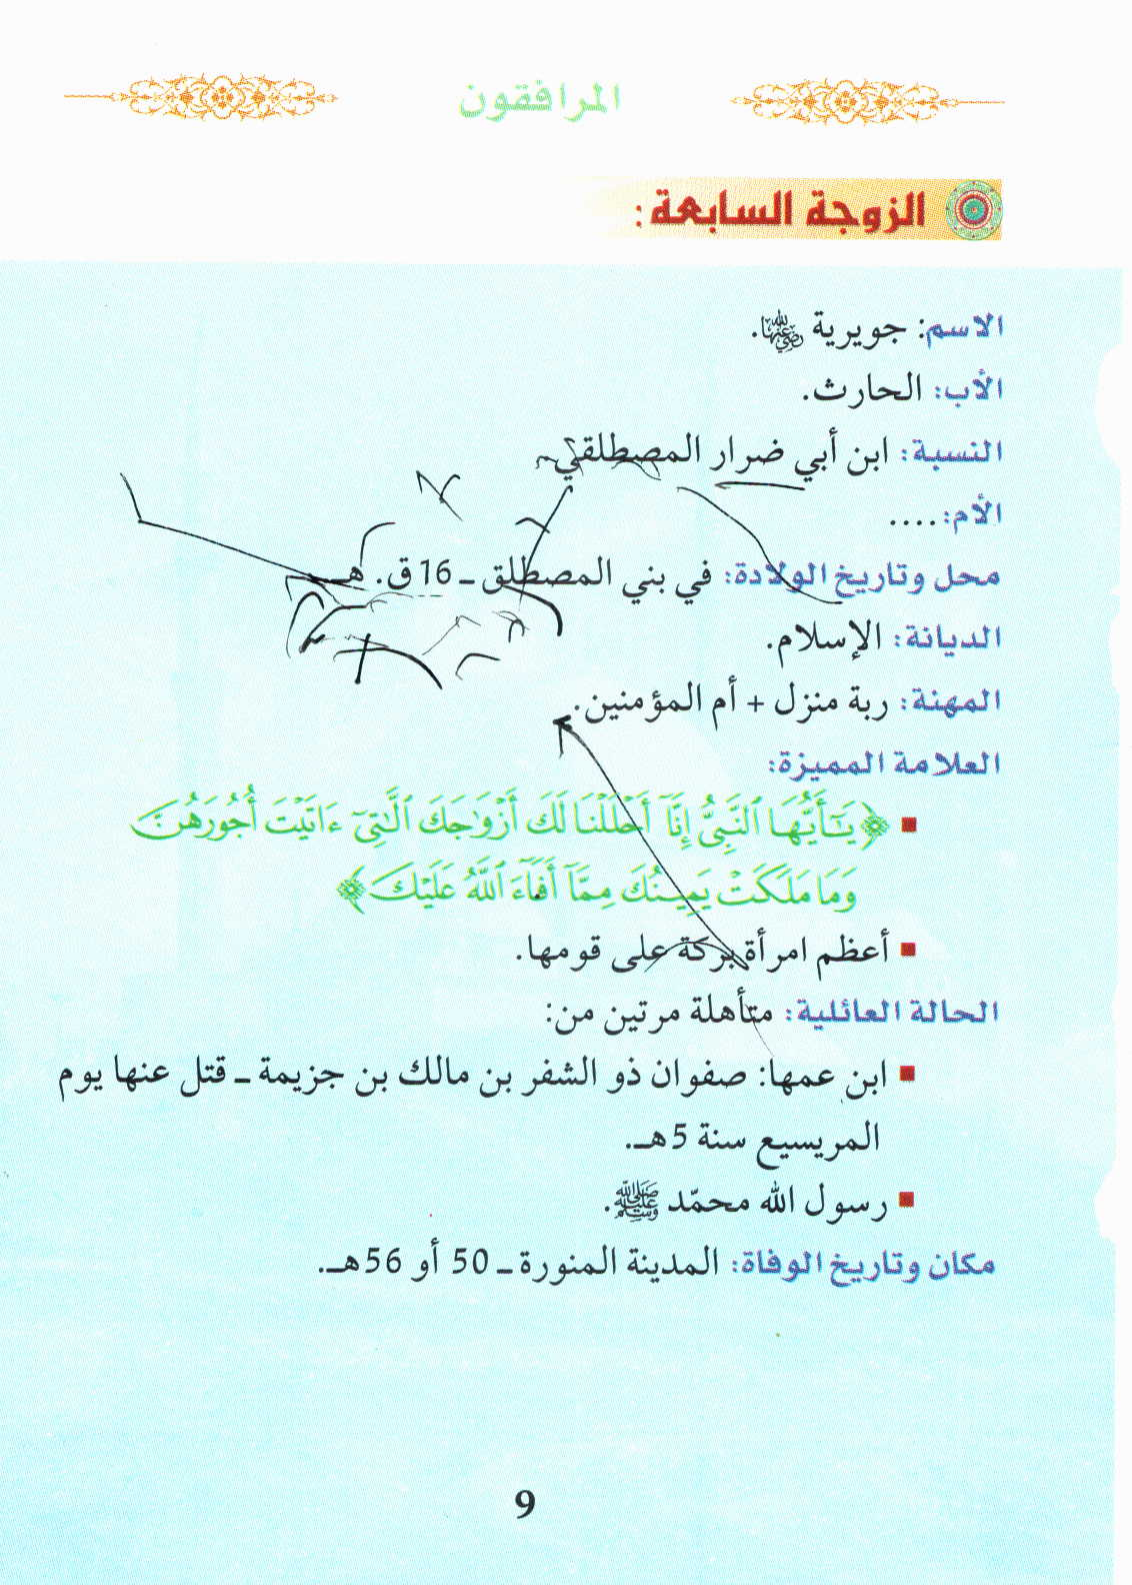 المرافقون
الزوجة السابعة:
الاسم: جويرية رضي الله عنها.
الأب: الحارث.
النسبة: ابن أبي ضرار المصطلقي
الأم: ....
محل وتاريخ الولادة: في بني المصطلق ـ 16 ق. هـ
الديانة: الإسلام.
المهنة: ربة منزل + أم المؤمنين.
العلامة المميزة:
▪ ﴿يَٰٓأَيُّهَا ٱلنَّبِىُّ إِنَّآ أَحْلَلْنَا لَكَ أَزْوَٰجَكَ ٱلَّٰتِىٓ ءَاتَيْتَ أُجُورَهُنَّ
وَمَا مَلَكَتْ يَمِينُكَ مِمَّآ أَفَآءَ ٱللَّهُ عَلَيْكَ﴾
▪ أعظم امرأة بركة على قومها.
الحالة العائلية: متأهلة مرتين من:
▪ ابن عمها: صفوان ذو الشفر بن مالك بن جزيمة ـ قتل عنها يوم
المريسيع سنة 5هـ.
▪ رسول الله محمّد ﷺ.
مكان وتاريخ الوفاة: المدينة المنورة ـ 50 أو 56هـ.
9